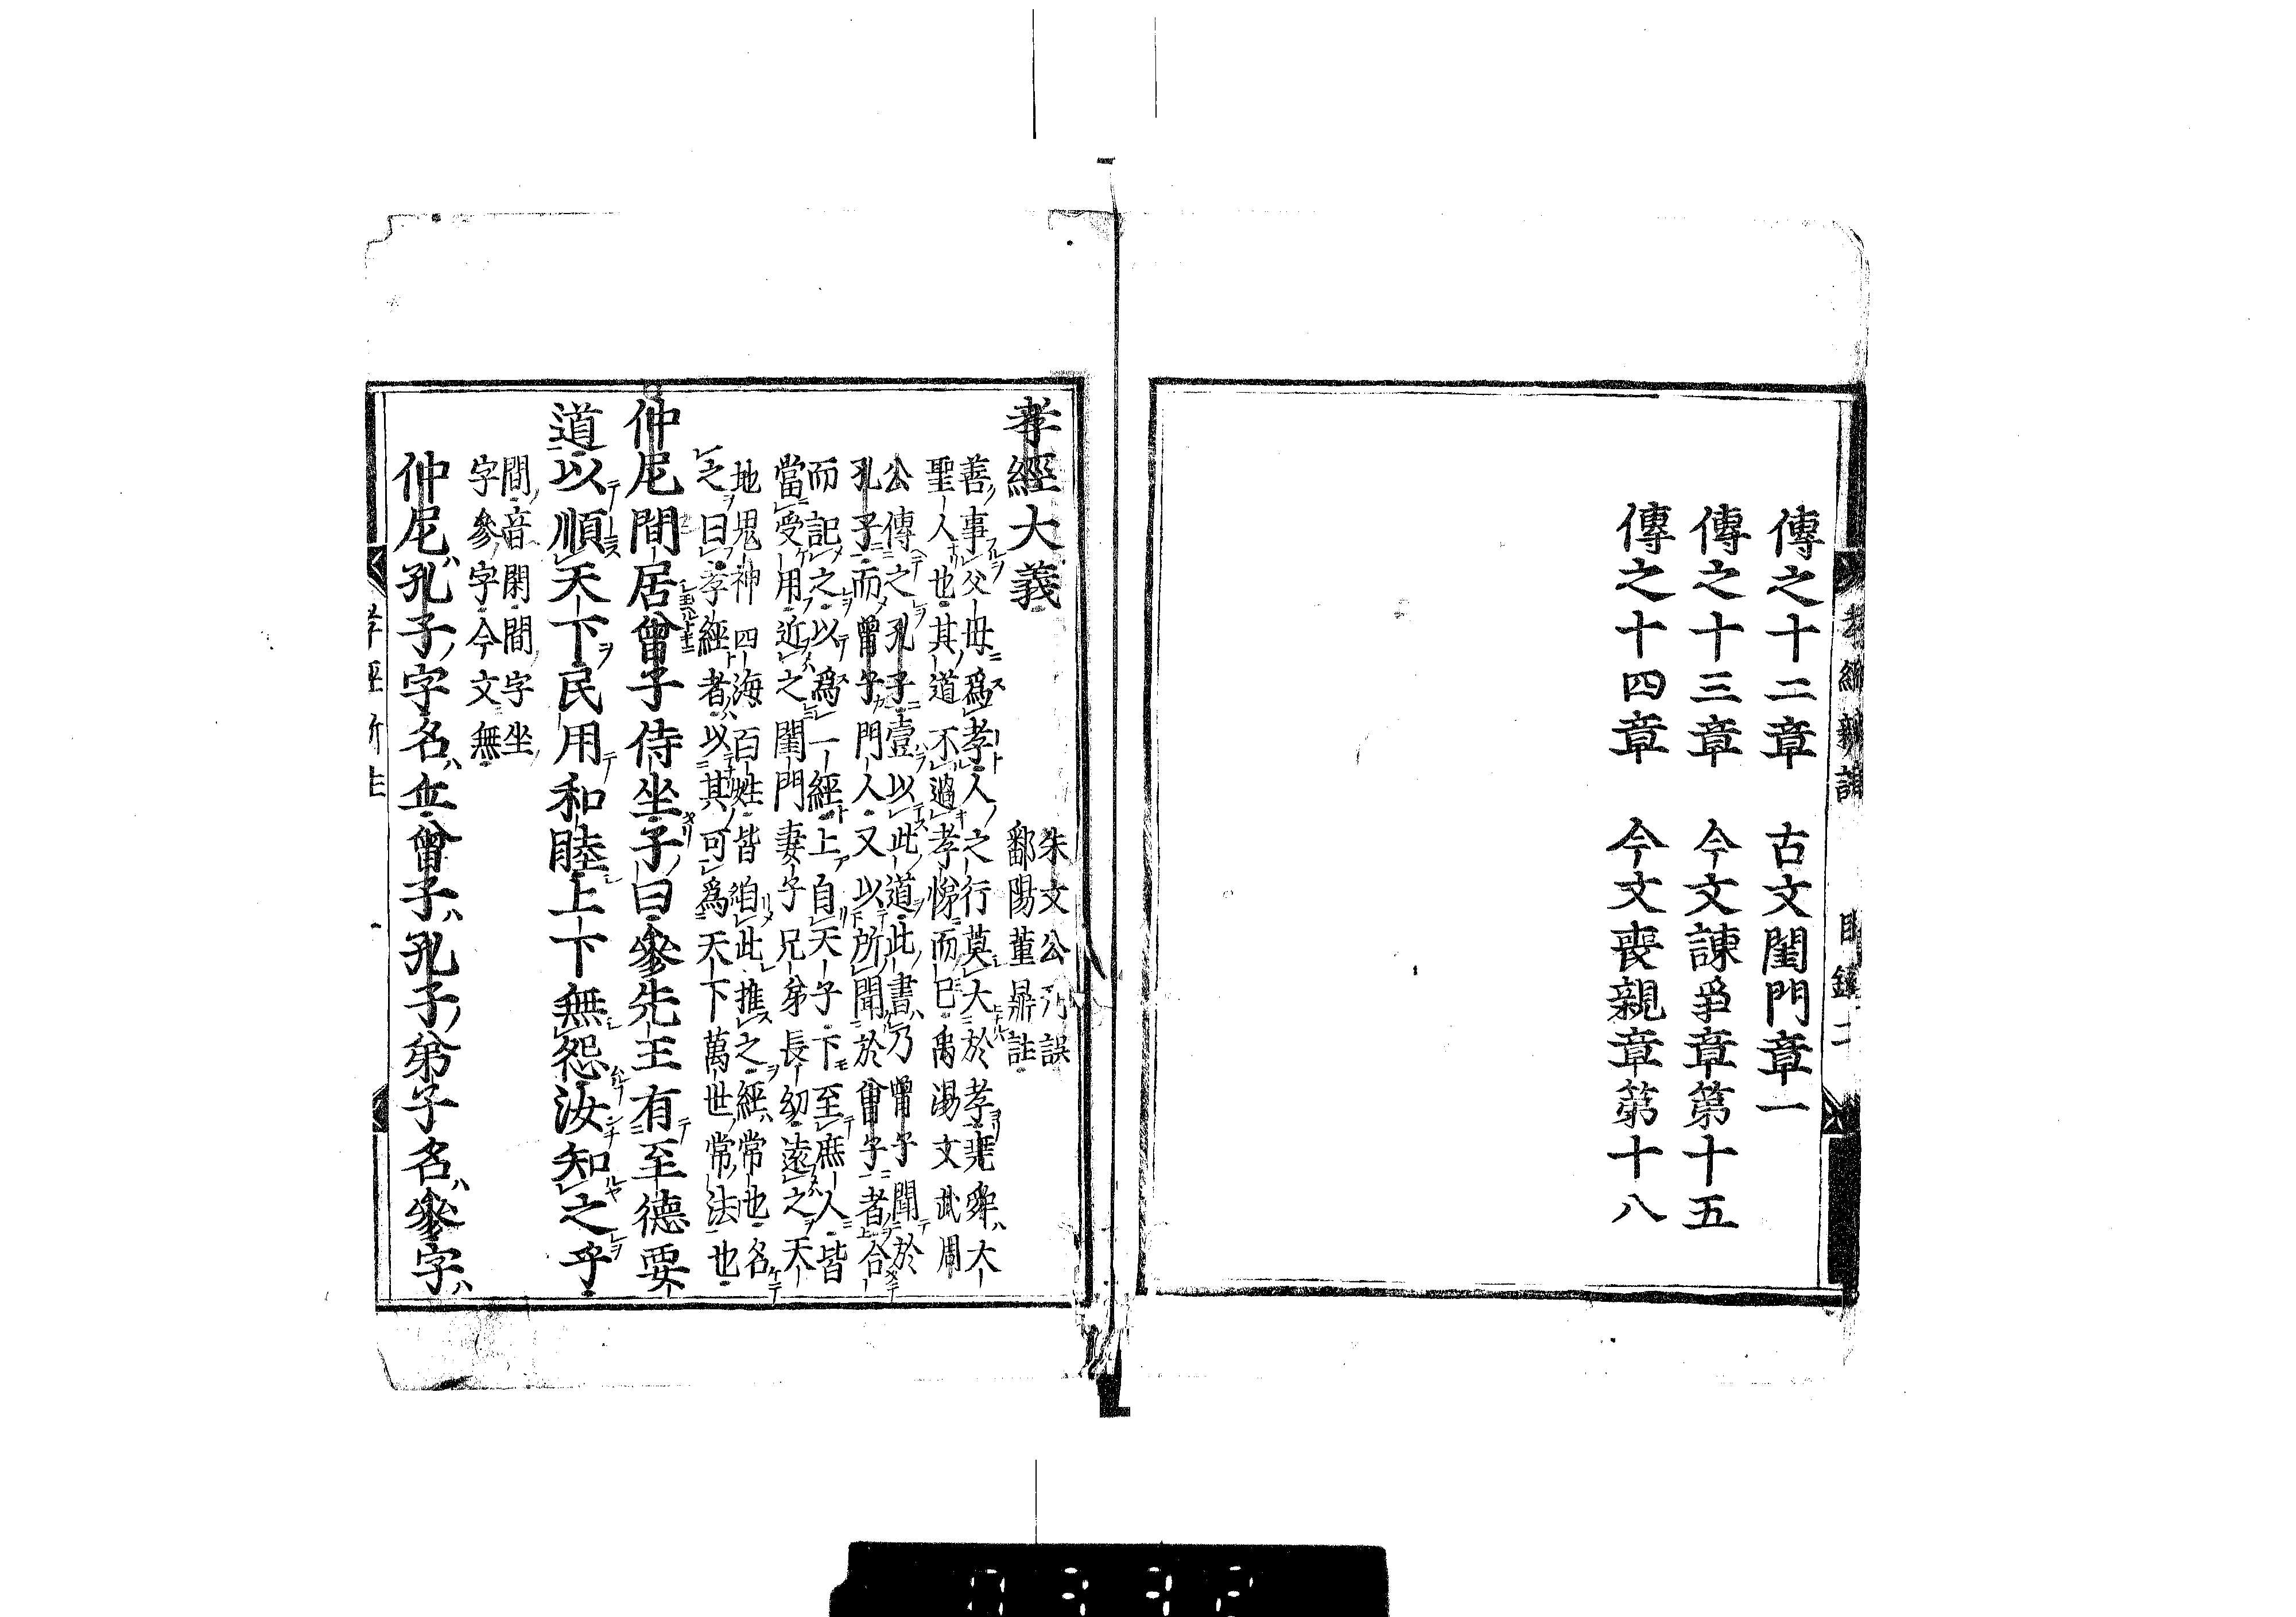 傳之十二章　古文閨門章一
傳之十三章　今文諫爭章第十五
傳之十四章　今文喪親章第十八
孝經大義
朱文公刊誤
鄱陽董鼎註
善事父母爲孝人之行莫大於孝堯舜大
聖人也其道不過孝悌而已禹湯文武周
公傳之孔子壹以此道此書乃曾子聞於
孔子而曾子門人又以所聞於曾子者合
而記之以爲一經上自天子下至庶人皆
當受用近之閨門妻子兄弟長幼遠之天
地鬼神四海百姓皆始此推之經常也名
之曰孝經者以其可爲天下萬世常法也
仲尼間居曾子侍坐子曰參先王有至德要
道以順天下民用和睦上下無怨汝知之乎
間音閑間字坐
字參字今文無
仲尼孔子字名丘曾子孔子弟子名參字